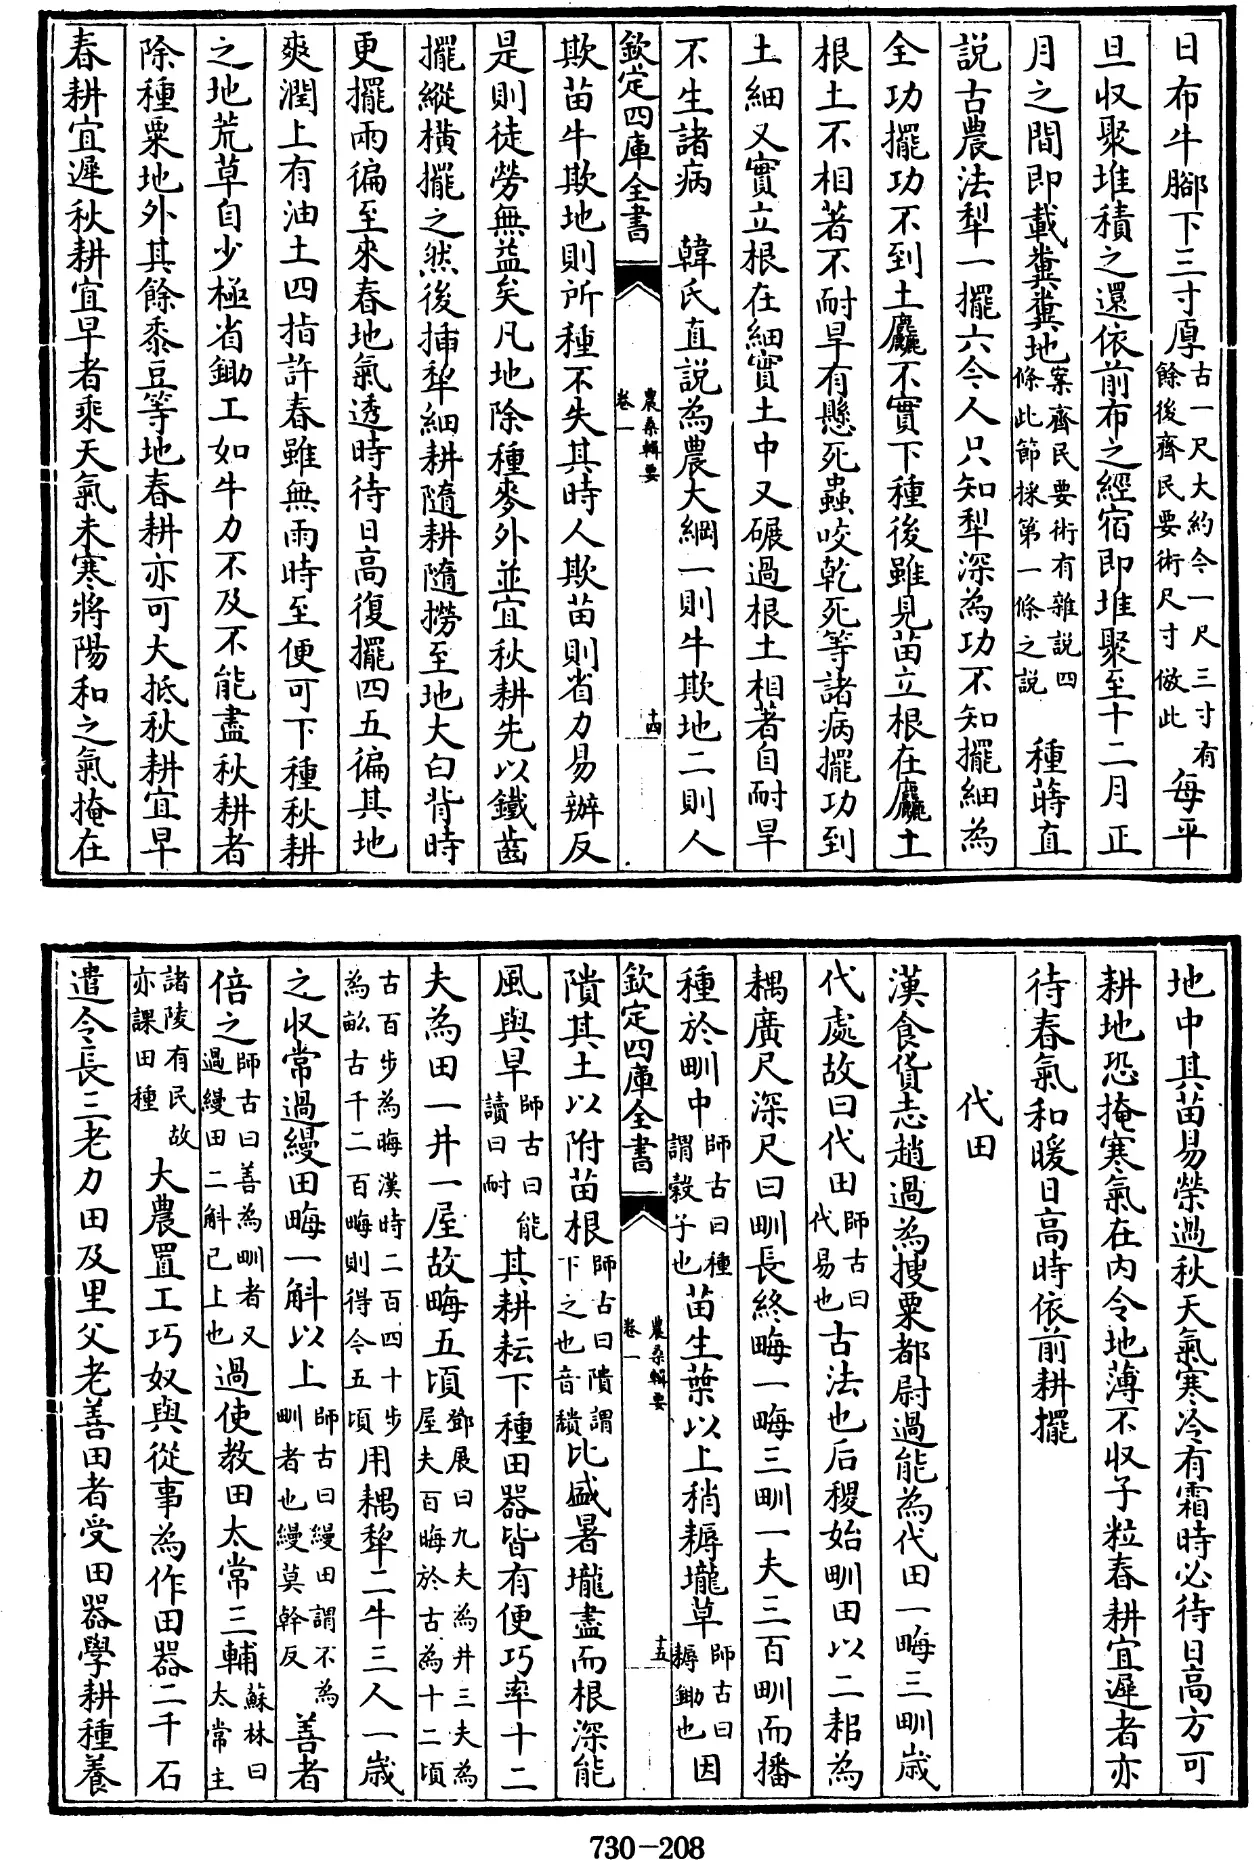 日布牛腳下三寸厚古一尺大約今一尺三寸有餘後齊民要術尺寸倣此每平
旦収聚堆積之還依前布之經宿即堆聚至十二月正
月之間即載糞糞地案齊民要術有雜說四條此節採第一條之說 種蒔直
說古農法犁一擺六今人只知犁深為功不知擺細為
全功擺功不到土麤不實下種後雖見苗立根在麤土
根土不相著不耐旱有懸死蟲咬乾死等諸病擺功到
土細又實立根在細實土中又碾過根土相著自耐旱
不生諸病 韓氏直說為農大綱一則牛欺地二則人
欽定四庫全書 農桑輯要 卷一 十四
欺苗牛欺地則所種不失其時人欺苗則省力易辦反
是則徒勞無益矣凡地除種麥外並宜秋耕先以鐵齒
擺縱橫擺之然後揷犁細耕隨耕隨撈至地大白背時
更擺兩徧至來春地氣透時待日高復擺四五徧其地
爽潤上有油土四指許春雖無雨時至便可下種秋耕
之地荒草自少極省鋤工如牛力不及不能盡秋耕者
除種粟地外其餘黍豆等地春耕亦可大抵秋耕宜早
春耕宜遲秋耕宜早者乘天氣未寒將陽和之氣掩在
地中其苗易榮過秋天氣寒冷有霜時必待日高方可
耕地恐掩寒氣在內令地薄不収子粒春耕宜遲者亦
待春氣和暖日高時依前耕擺
代田
漢食貨志趙過為搜粟都尉過能為代田一畮三甽歲
代處故曰代田師古曰代易也古法也后稷始甽田以二耜為
耦廣尺深尺曰甽長終畮一畮三甽一夫三百甽而播
種於甽中師古曰種謂榖子也苗生葉以上稍耨壠草師古曰耨鋤也因
欽定四庫全書 農桑輯要 卷一 十五
隤其土以附苗根師古曰隤謂下之也音頹比盛暑壠盡而根深能
風與旱師古曰能讀曰耐其耕耘下種田器皆有便巧率十二
夫為田一井一屋故畮五頃鄧展曰九夫為井三夫為屋夫百畮於古為十二頃
古百步為畮漢時二百四十步為畝古千二百畮則得今五頃用耦犁二牛三人一歲
之収常過縵田畮一斛以上師古曰縵田謂不為甽者也縵莫幹反善者
倍之師古曰善為甽者又過縵田二斛已上也過使教田太常三輔蘇林曰太常主
諸陵有民故亦課田種大農置工巧奴與從事為作田器二千石
遣令長三老力田及里父老善田者受田器學耕種養
730-208